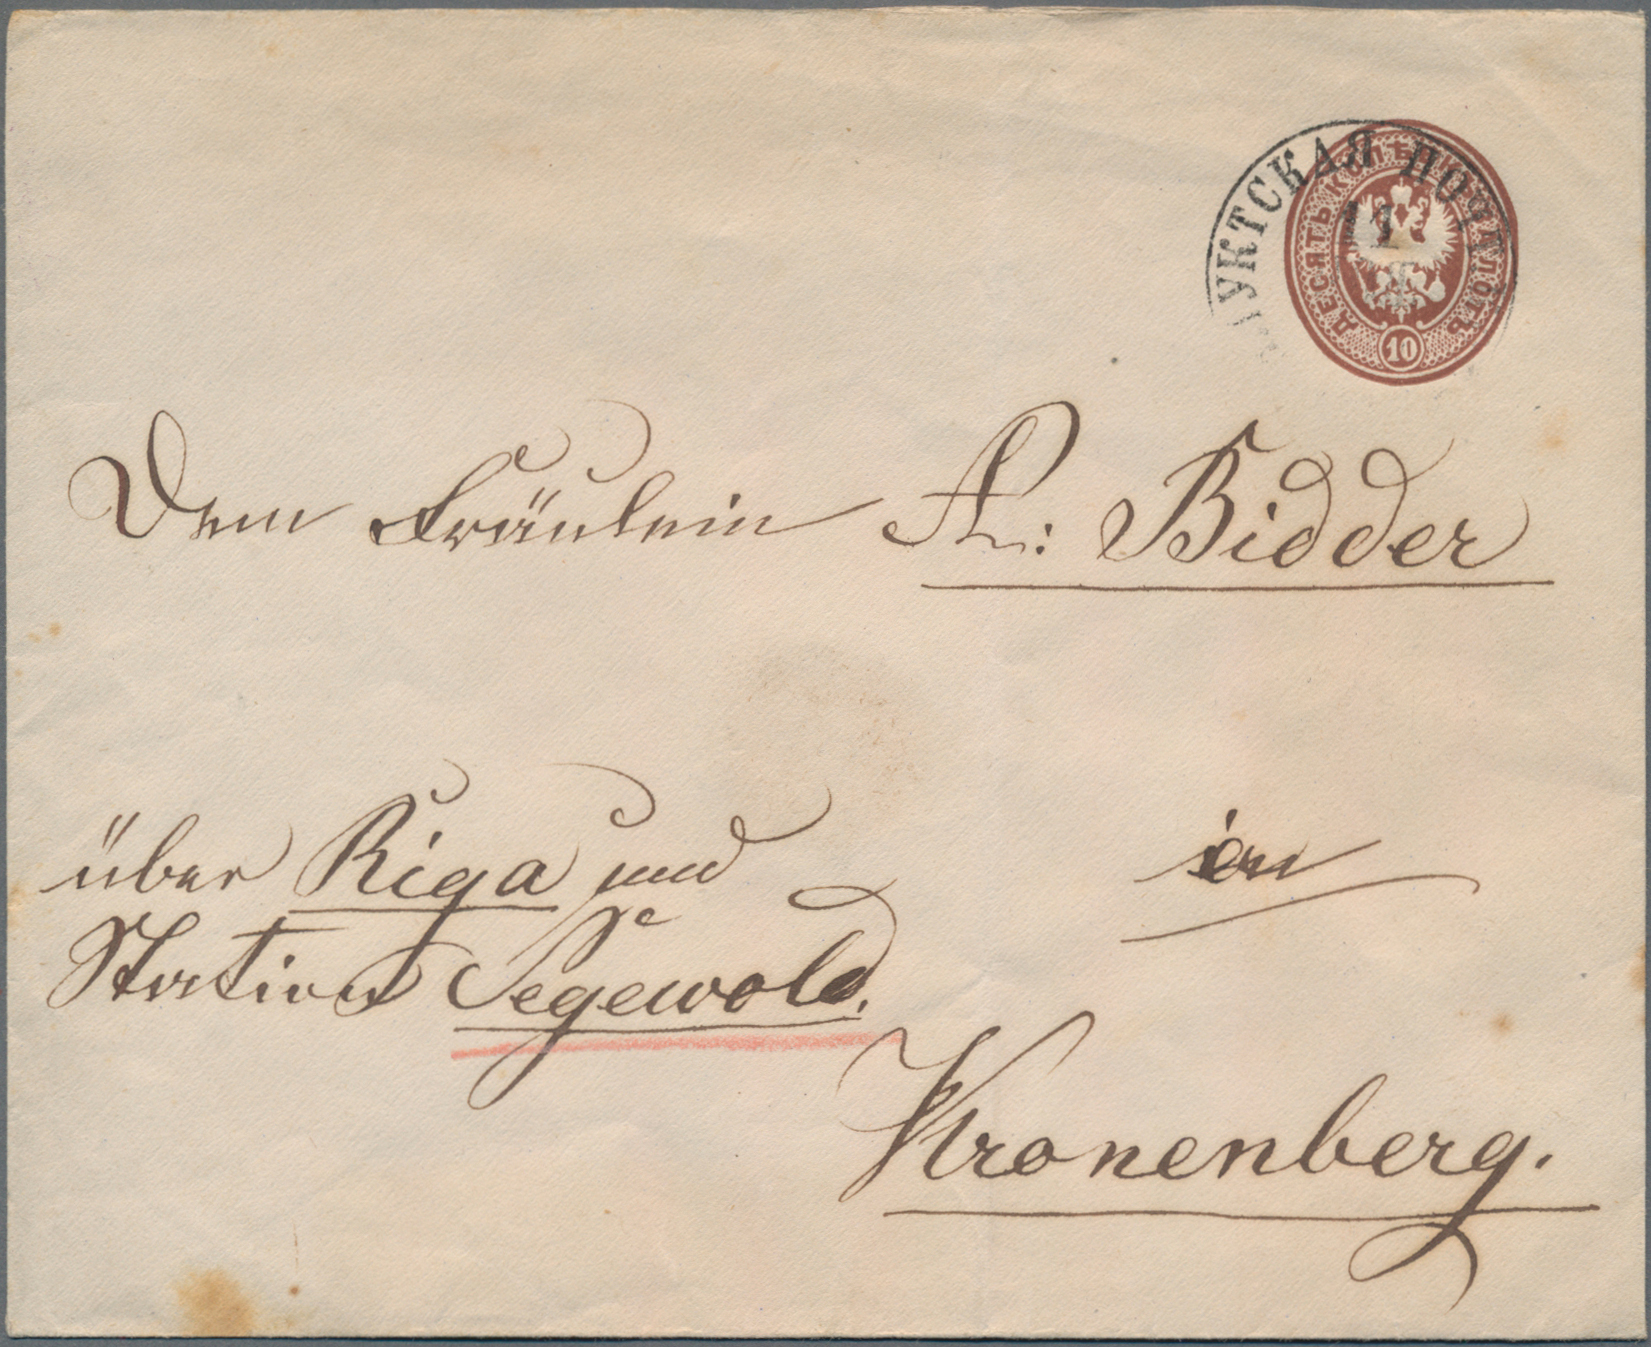 УКТСКАЯ ПОЧТ
11
ДЕСЯТЬ КОП. ЛОТЪ
10
Dem Fräulein A: Bidder
über Riga und
in
Station Segewold.
Kronenberg.